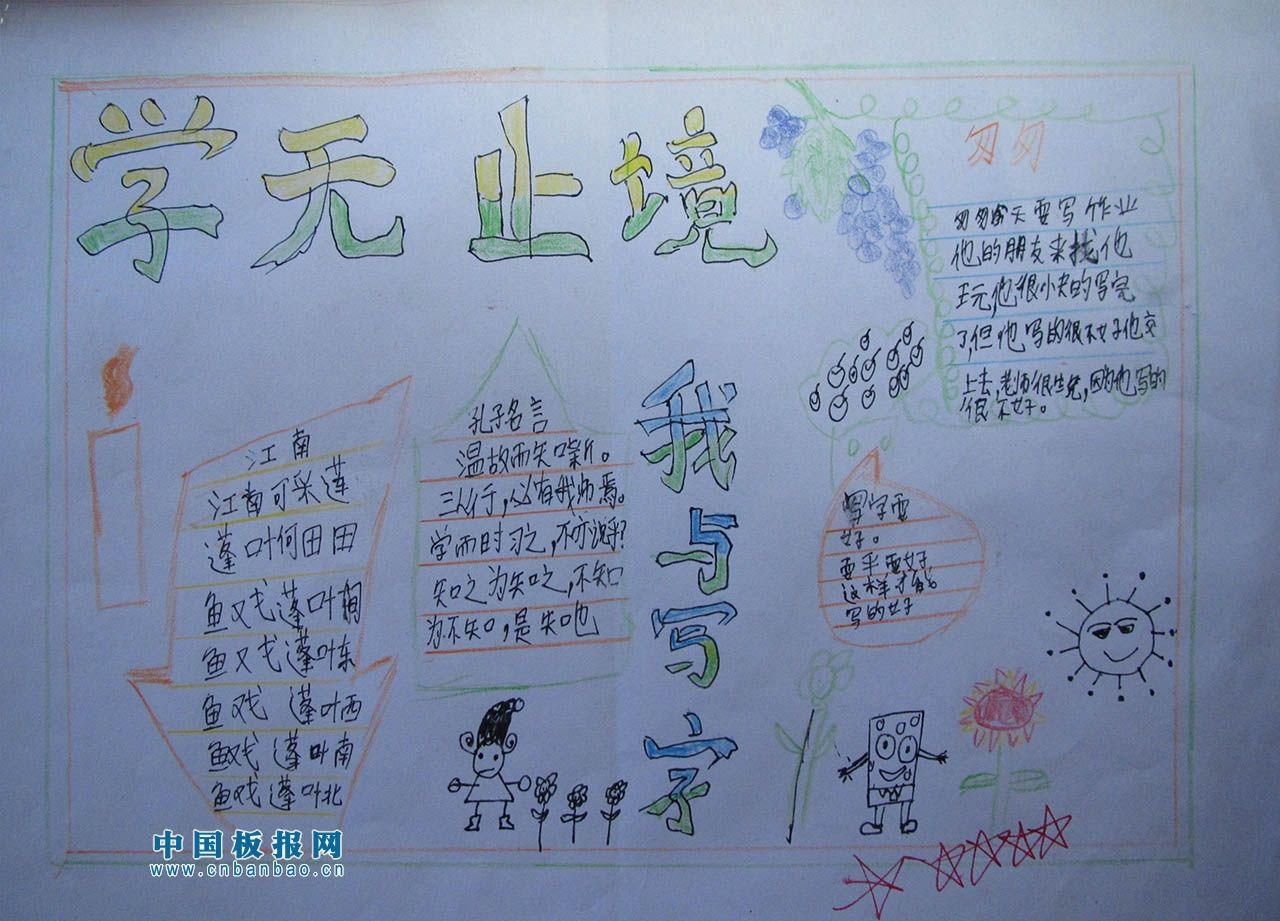 学无止境
匆匆
匆匆每天要写作业
他的朋友来找他
玩他很小央的写完
了,但他写的很不好他交
上去,老师很生气,因为他写的
很不好。
江南
江南可采莲
蓬叶何田田
鱼戏蓬叶间
鱼戏蓬叶东
鱼戏 蓬叶西
鱼戏 蓬叶南
鱼戏蓬叶北
孔子名言
温故而知新。
三人行,必有我师焉。
学而时习之,不亦说乎?
知之为知之,不知
为不知,是知也
我与写字
写字要
好。
要平要好
这样才能
写的好
中国板报网
www.cnbanbao.cn